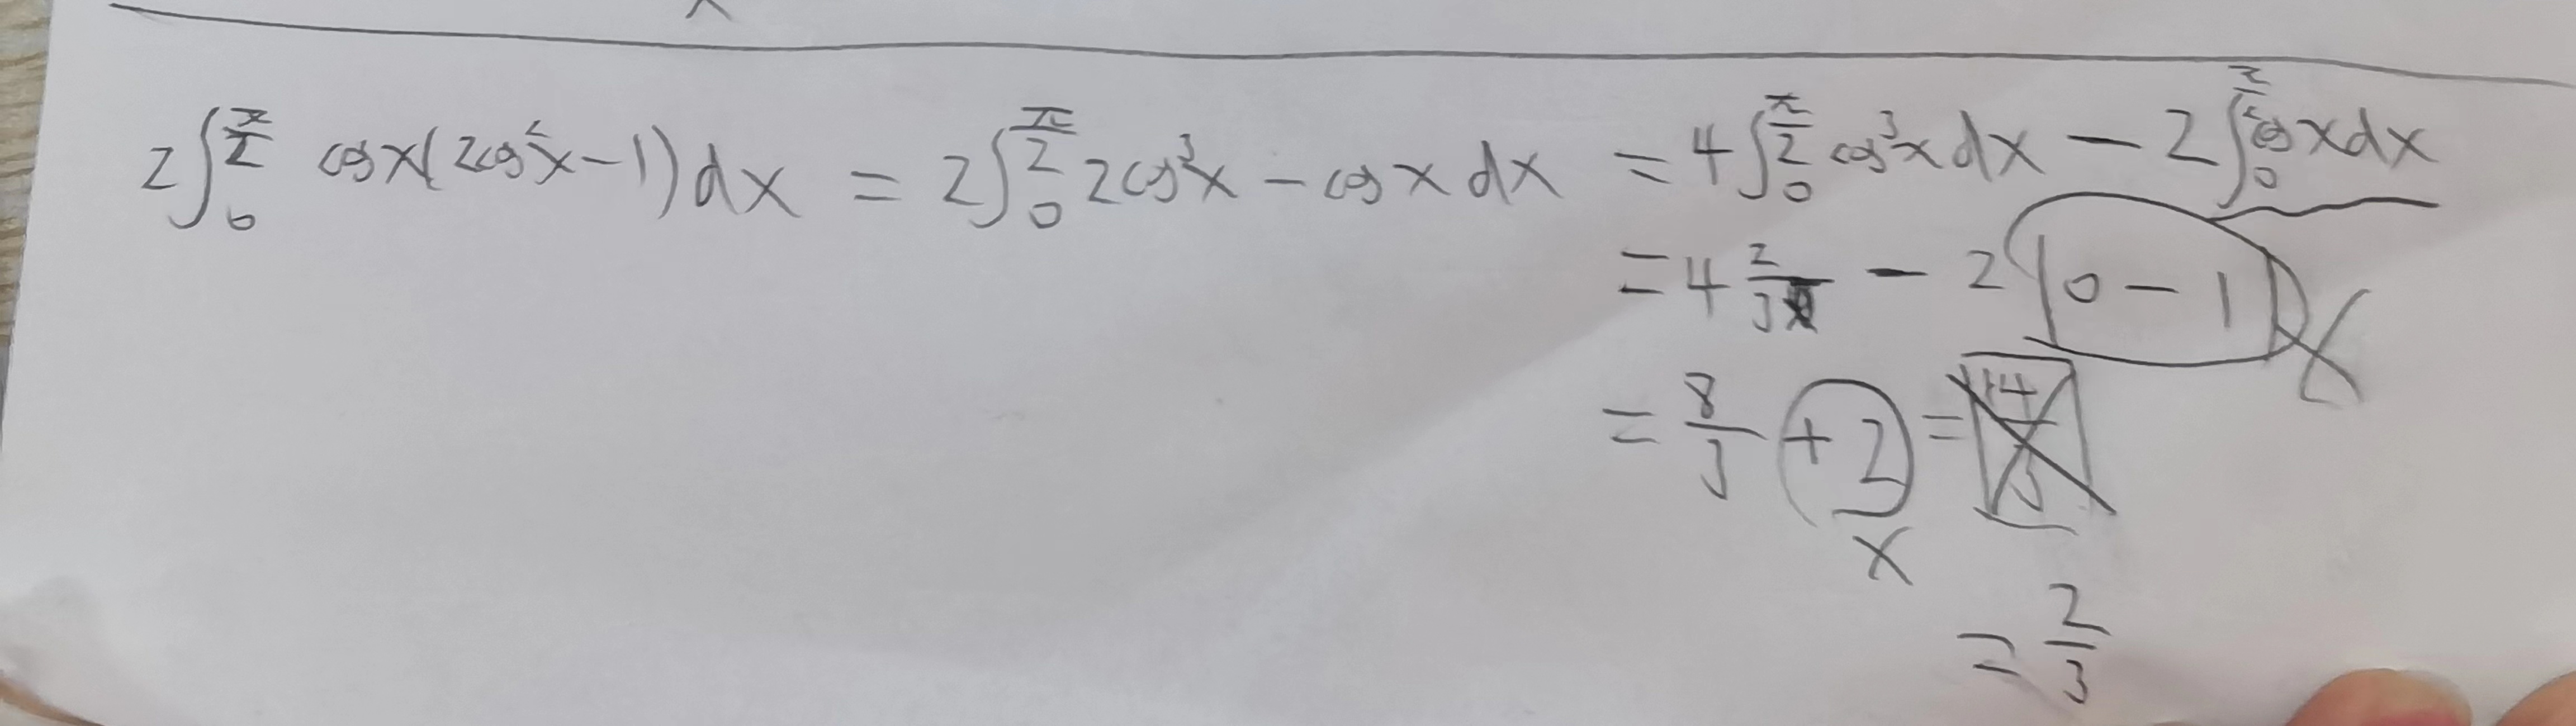 2∫₀^(π/2) cosx(2cos²x-1)dx = 2∫₀^(π/2) 2cos³x - cosx dx = 4∫₀^(π/2) cos³x dx - 2∫₀^(π/2) cosxdx
= 4 2/3 - 2(0-1) X
= 8/3 + 2 = 14/3
X
= 2/3